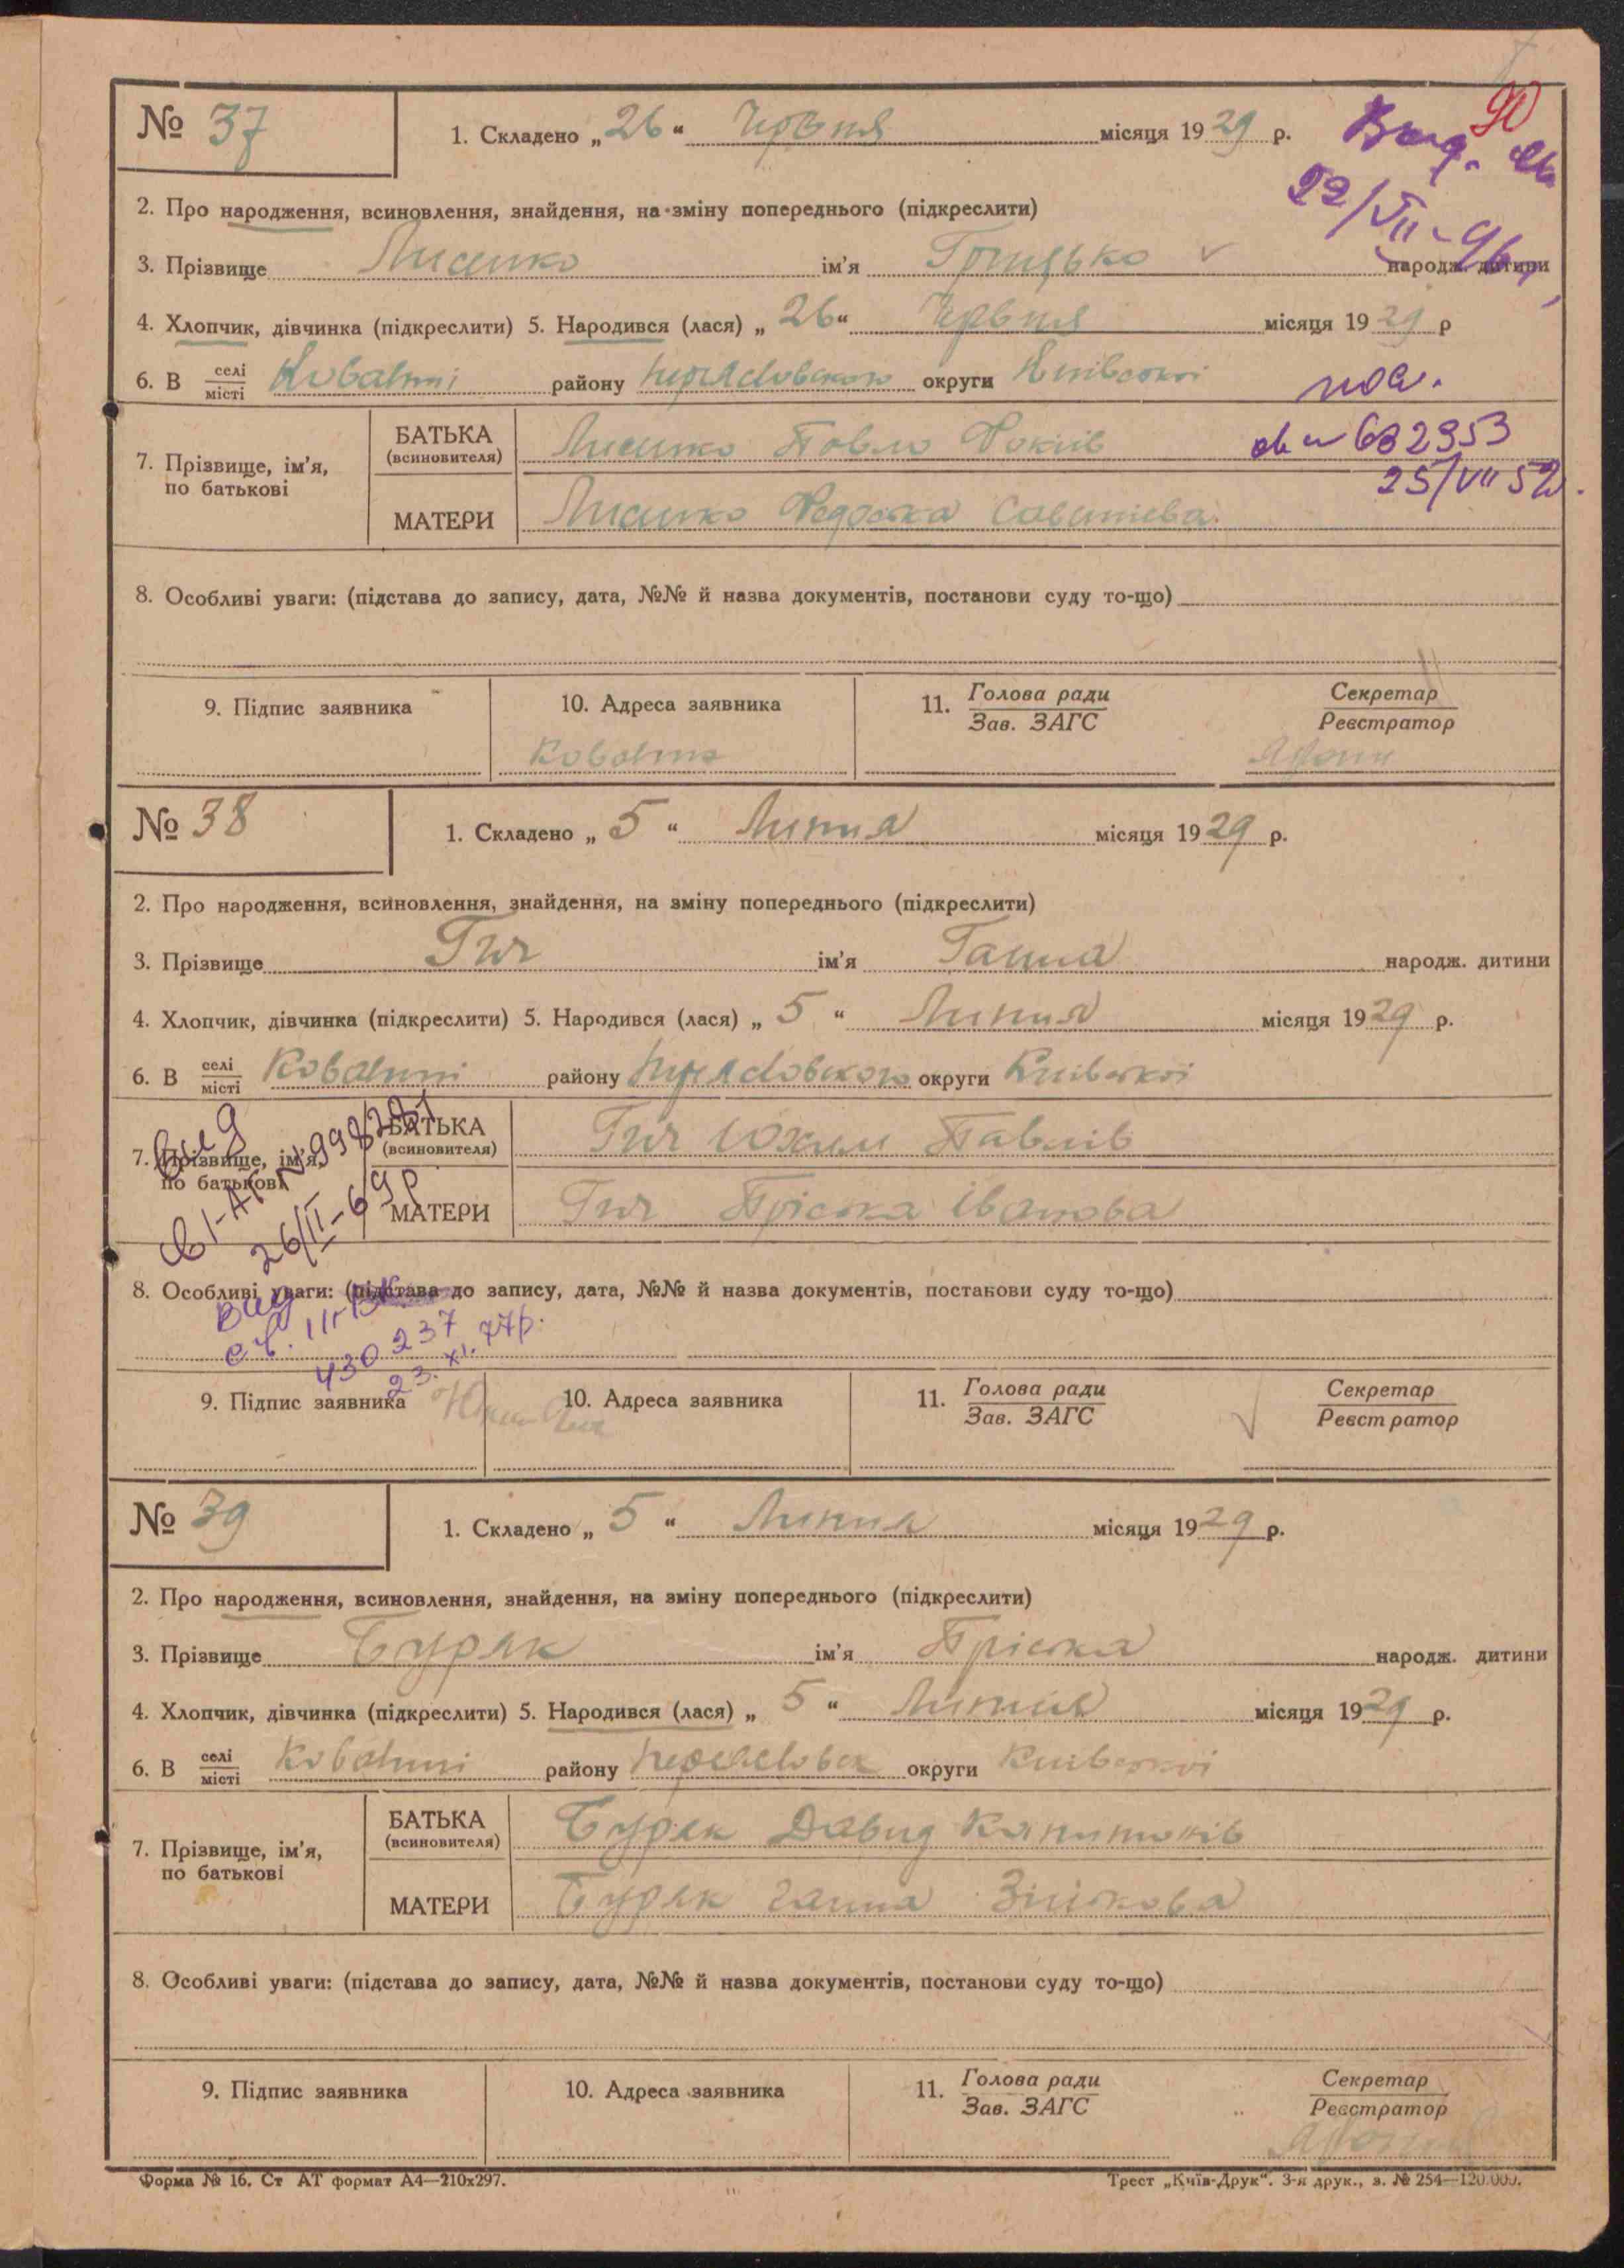 90
№ 37
1. Складено „ 26 “ Червня місяця 1929 р.
2. Про народження, всиновлення, знайдення, на зміну попереднього (підкреслити)
22/VII-96
3. Прізвище Лисенко ім’я Грицько народж. дитини
4. Хлопчик, дівчинка (підкреслити) 5. Народився (лася) „ 26 “ Червня місяця 1929 р
6. В селі/місті Ковалині району округи Київської
7. Прізвище, ім’я, по батькові
БАТЬКА (всиновителя) Лисенко Павло Фокиів
632953
25/VII 52
МАТЕРИ Лисенко Федоська
8. Особливі уваги: (підстава до запису, дата, №№ й назва документів, постанови суду то-що)
9. Підпис заявника 10. Адреса заявника 11. Голова ради/Зав. ЗАГС Секретар/Реєстратор
№ 38
1. Складено „ 5 “ Липня місяця 1929 р.
2. Про народження, всиновлення, знайдення, на зміну попереднього (підкреслити)
3. Прізвище Гич ім’я Ганна народж. дитини
4. Хлопчик, дівчинка (підкреслити) 5. Народився (лася) „ 5 “ Липня місяця 1929 р.
6. В селі/місті Ковалині району округи Київської
7. Прізвище, ім’я, по батькові
БАТЬКА (всиновителя) Гич Юхим Павлів
МАТЕРИ Гич Пріська Іванова
26/II-69 р
8. Особливі уваги: (підстава до запису, дата, №№ й назва документів, постанови суду то-що)
430237
23. XI. 77р.
9. Підпис заявника 10. Адреса заявника 11. Голова ради/Зав. ЗАГС Секретар/Реєстратор
№ 39
1. Складено „ 5 “ Липня місяця 1929 р.
2. Про народження, всиновлення, знайдення, на зміну попереднього (підкреслити)
3. Прізвище Буряк ім’я Пріська народж. дитини
4. Хлопчик, дівчинка (підкреслити) 5. Народився (лася) „ 5 “ Липня місяця 1929 р.
6. В селі/місті Ковалині району округи Київської
7. Прізвище, ім’я, по батькові
БАТЬКА (всиновителя) Буряк Давид Капитонів
МАТЕРИ Буряк Ганна Зінькова
8. Особливі уваги: (підстава до запису, дата, №№ й назва документів, постанови суду то-що)
9. Підпис заявника 10. Адреса заявника 11. Голова ради/Зав. ЗАГС Секретар/Реєстратор
Форма № 16. Ст АТ формат А4—210х297. Трест „Київ-Друк“. 3-я друк., з. № 254—120.000.